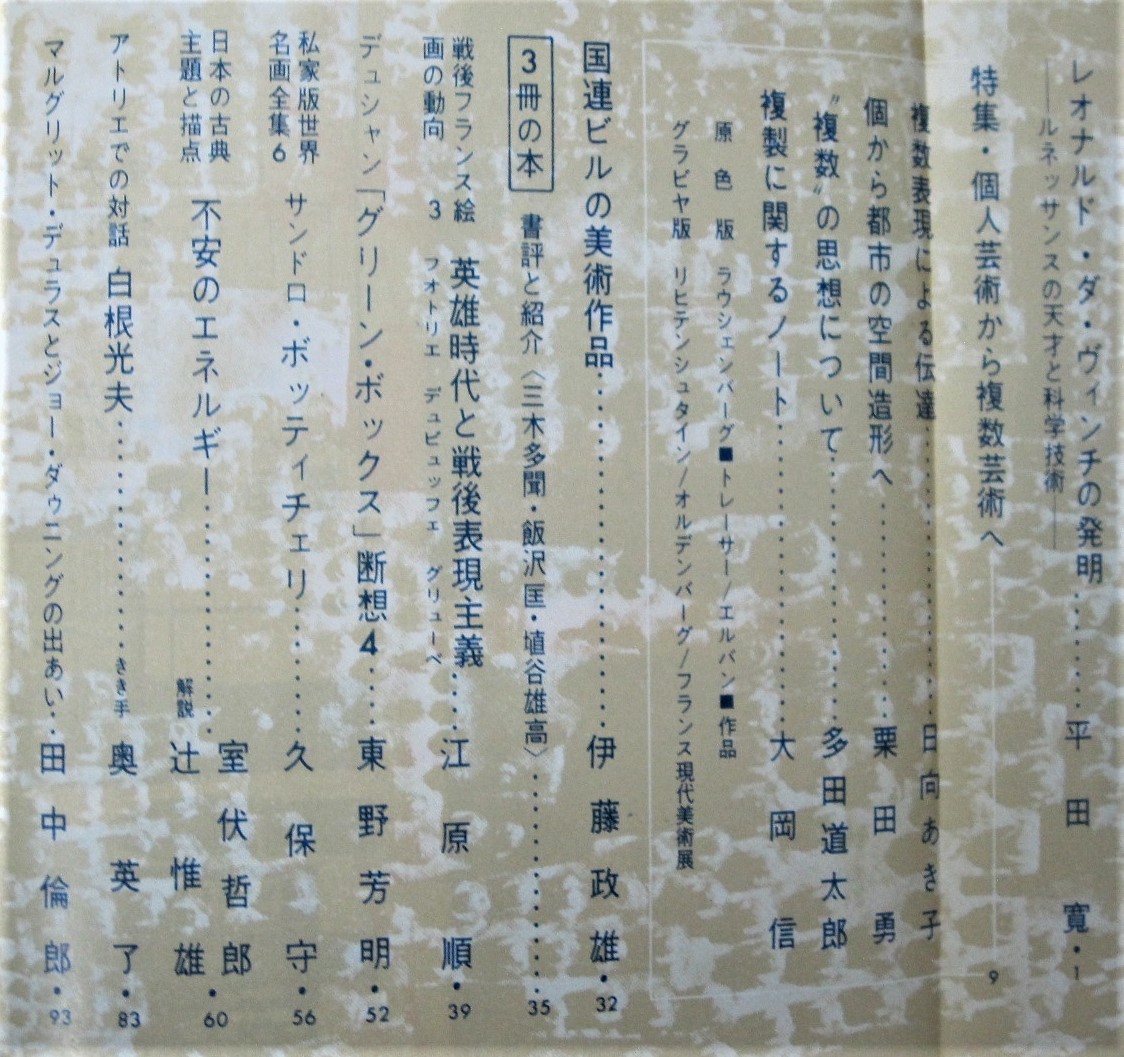 レオナルド・ダ・ヴィンチの発明・・・・・・平田寛・1
――ルネッサンスの天才と科学技術――
特集・個人芸術から複数芸術へ 9
複数表現による伝達・・・・・・日向あき子
個から都市の空間造形へ・・・・・・栗田勇
〝複数〟の思想について・・・・・・多田道太郎
複製に関するノート・・・・・・大岡信
原色版 ラウシェンバーグ■トレーサー/エルバン■作品
グラビヤ版 リヒテンシュタイン/オルデンバーグ/フランス現代美術展
国連ビルの美術作品・・・・・・伊藤政雄・32
3冊の本 書評と紹介〈三木多聞・飯沢匡・埴谷雄高〉・・・・・・35
戦後フランス絵
画の動向 3 英雄時代と戦後表現主義・・・・・・江原順・39
フォトリエ デュビュッフェ グリューベ
デュシャン「グリーン・ボックス」断想4・・・・・・東野芳明・52
私家版世界
名画全集6 サンドロ・ボッティチェリ・・・・・・久保守・56
日本の古典
主題と描点 不安のエネルギー・・・・・・室伏哲郎・60
解説 辻惟雄
アトリエでの対話 白根光夫・・・・・・きき手 奥英了・83
マルグリット・デュラスとジョー・ダウニングの出あい・・・田中倫郎・93